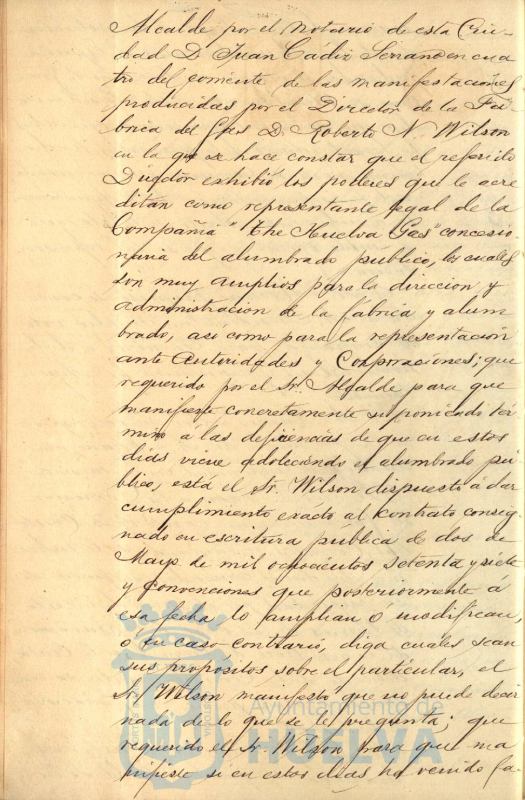 Alcalde por el notario de esta Ciu-
dad D. Juan Cádiz Serrano en cua
tro del corriente, de las manifestaciones
producidas por el Director de la Fá
brica del Gas D. Roberto N. Wilson
en la que se hace constar que el referido
Director exhibió los poderes que le acre
ditan como representante legal de la
Compañia "The Huelva Gas" concesio
naria del alumbrado público, los cuales
son muy amplios para la direccion y
administracion de la fábrica y alum
brado, asi como para la representacion
ante Autoridades y Corporaciones; que
requerido por el Sr. Alcalde para que
manifieste concretamente si poniendo tér
mino á las deficiencias de que en estos
dias viene adoleciendo el alumbrado pú
blico, está el Sr. Wilson dispuesto á dar
cumplimiento exacto al contrato consig
nado en escritura pública de dos de
Mayo de mil ochocientos setenta y siete
y convenciones que posteriormente á
esa fecha lo amplian ó modifican,
ó en caso contrario, diga cuales sean
sus propósitos sobre el particular, el
Sr. Wilson manifestó que no puede decir
nada de lo que se le pregunta; que
requerido el Sr. Wilson para que ma
nifieste si en estos dias ha venido fa-
Ayuntamiento de
HUELVA